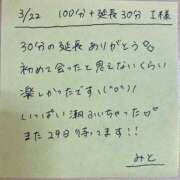 3/22 100分+延長30分 I様
30分の延長ありがとう
初めて会ったと思えないくらい
楽しかったです\(^o^)/
いっぱい潮ふいちゃった
また29日待ってます!!
みと